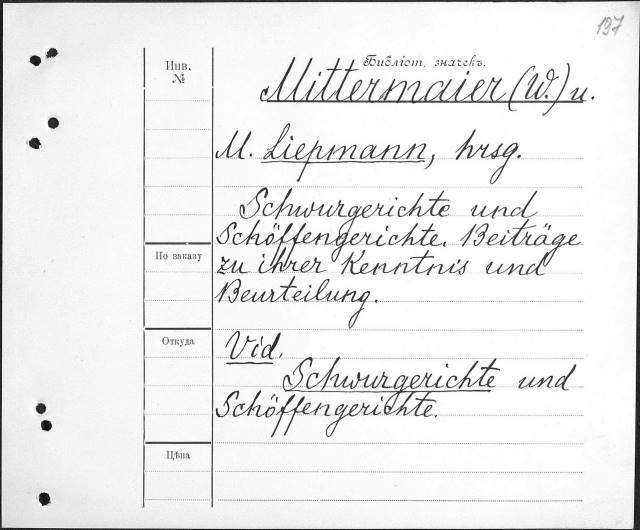 197
Инв.
№
Библіот. значекъ.
Mittermaier (W.) u.
M. Liepmann, hrsg.
Schwurgerichte und
Schöffengerichte. Beiträge
По заказу
zu ihrer Kenntnis und
Beurteilung.
Откуда
Vid.
Schwurgerichte und
Schöffengerichte.
Цѣна